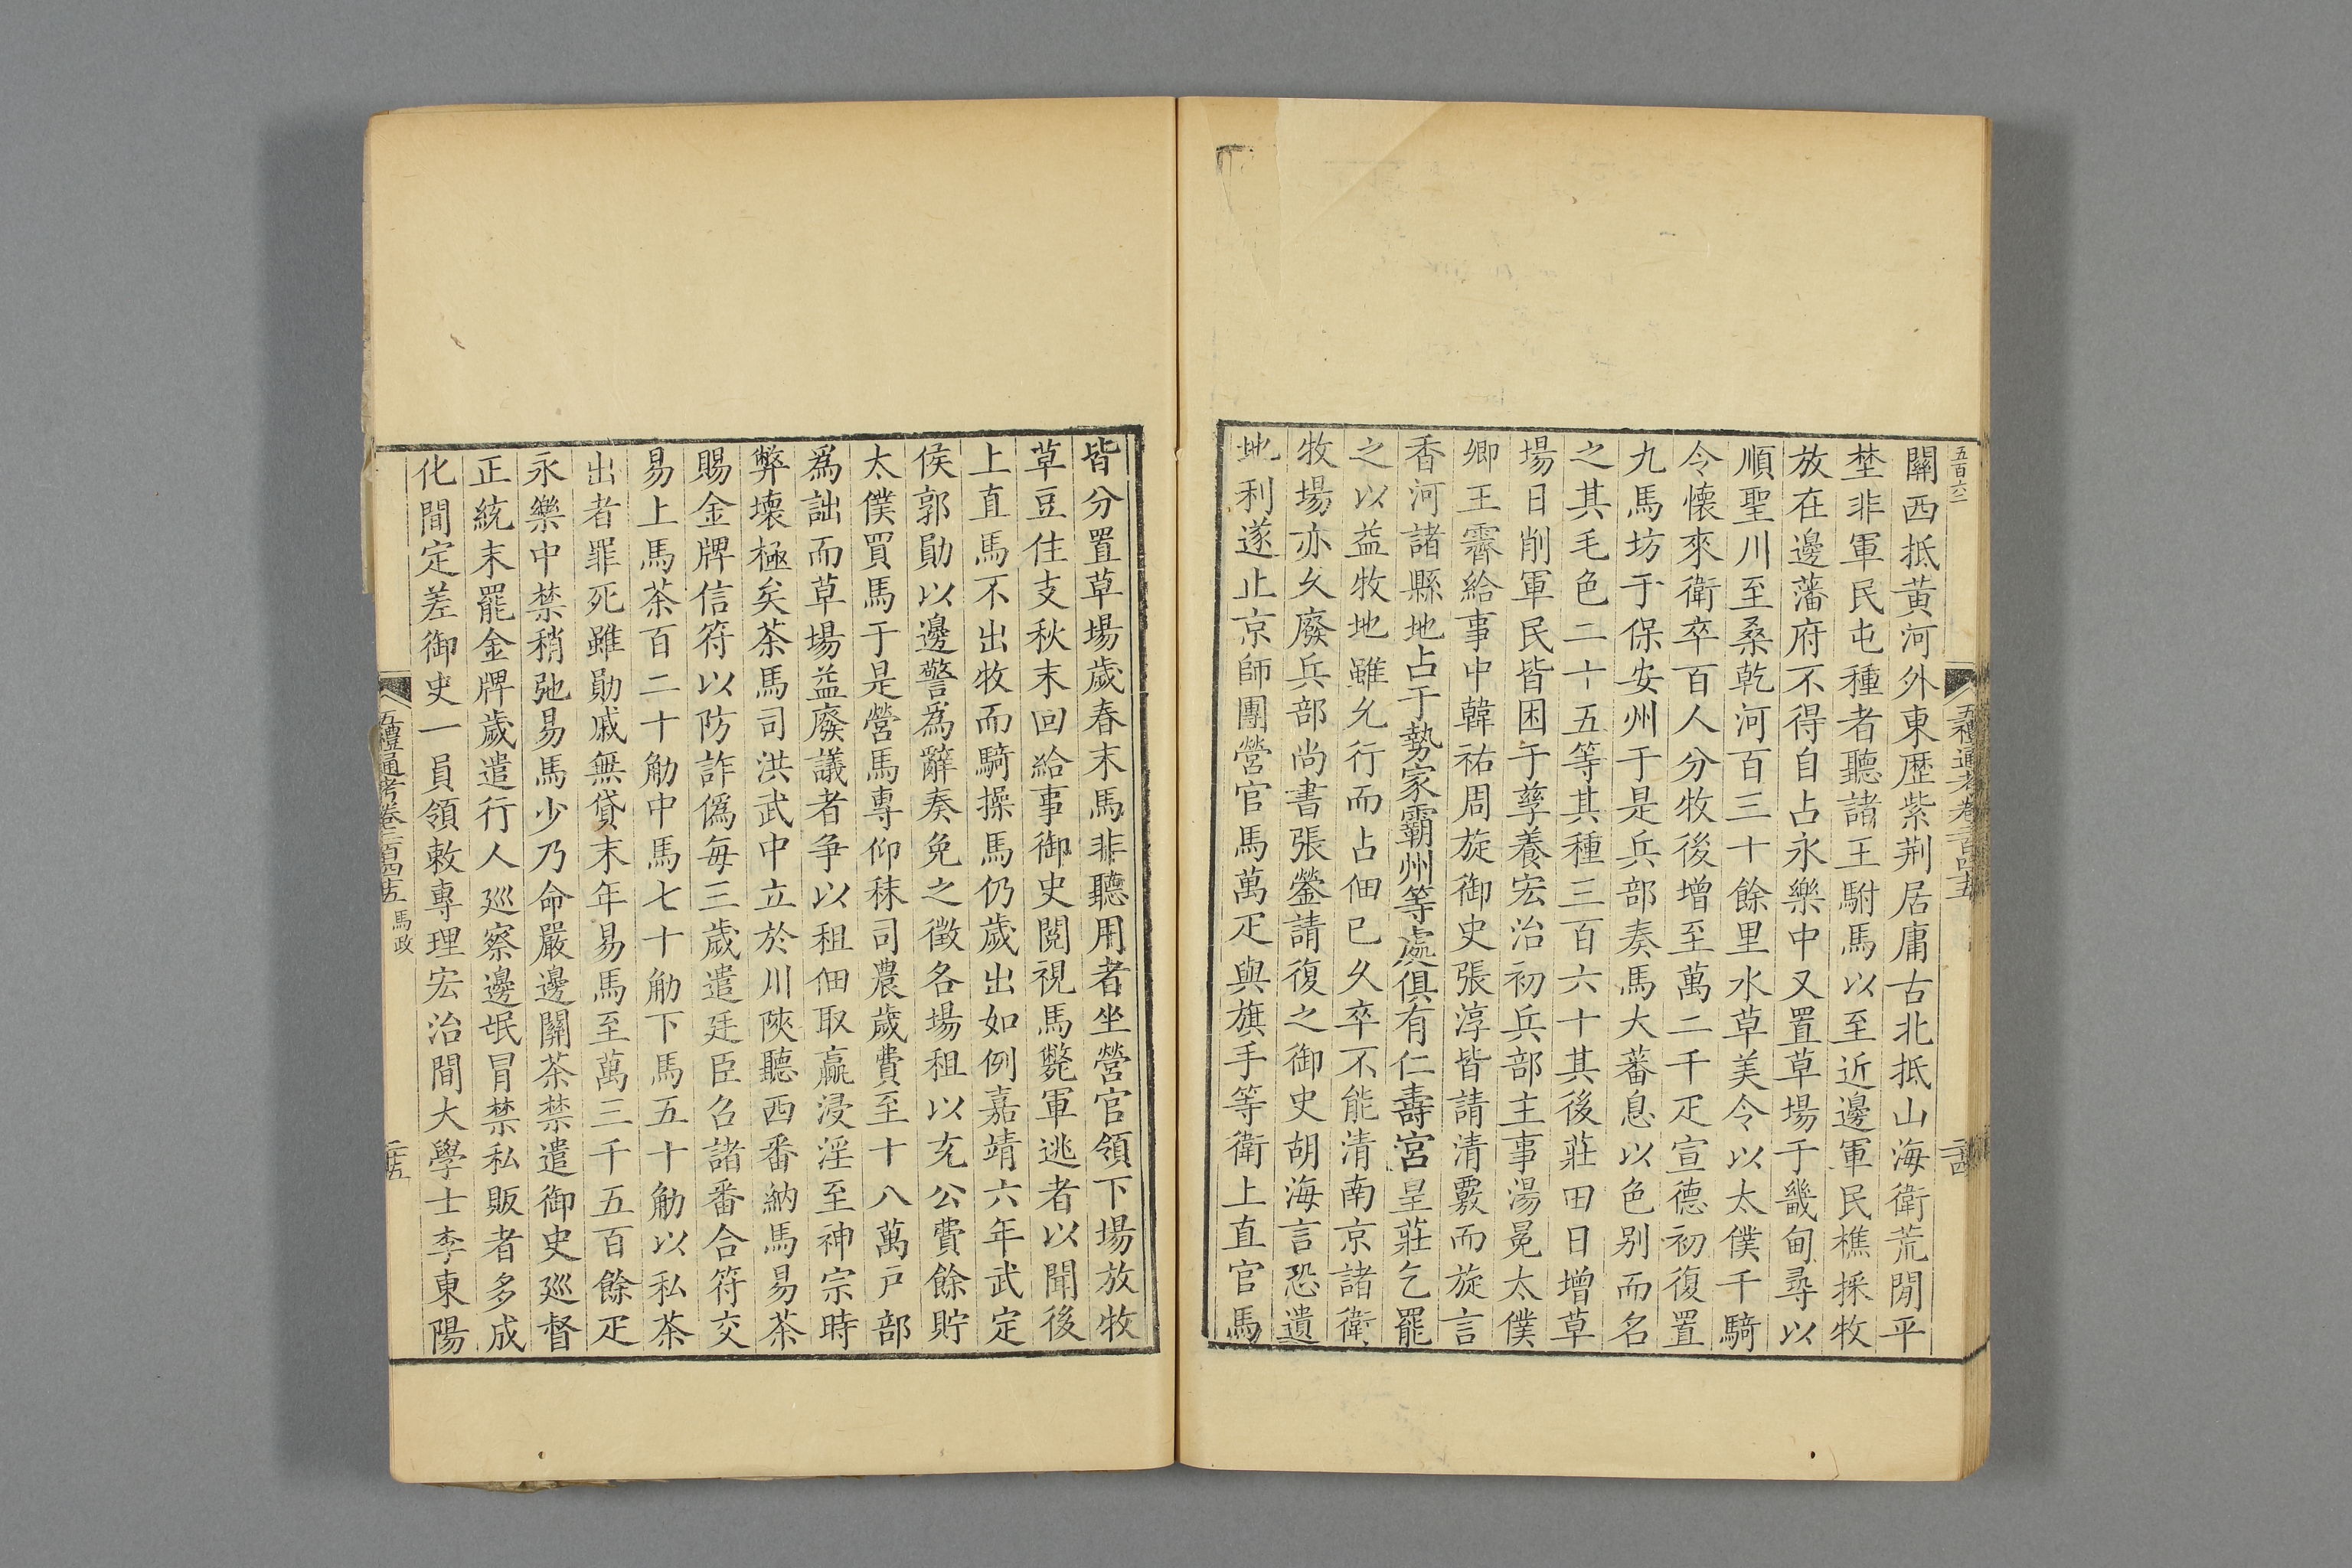 五百六二
五禮通考卷二百四十五
二十四
關西抵黃河外東歷紫荆居庸古北抵山海衛荒閒平
埜非軍民屯種者聽諸王駙馬以至近邊軍民樵採牧
放在邊藩府不得自占永樂中又置草場于畿甸尋以
順聖川至桑乾河百三十餘里水草美令以太僕千騎
令懷來衛卒百人分牧後增至萬二千疋宣德初復置
九馬坊于保安州于是兵部奏馬大蕃息以色别而名
之其毛色二十五等其種三百六十其後莊田日增草
場日削軍民皆困于孳養宏治初兵部主事湯冕太僕
卿王霽給事中韓祐周旋御史張淳皆請清覈而旋言
香河諸縣地占于勢家霸州等處俱有仁壽宮皇莊乞罷
之以益牧地雖允行而占佃已久卒不能清南京諸衛
牧場亦久廢兵部尚書張鎣請復之御史胡海言恐遺
地利遂止京師團營官馬萬疋與旗手等衛上直官馬
皆分置草場歲春末馬非聽用者坐營官領下場放牧
草豆住支秋末回給事御史閱視馬斃軍逃者以聞後
上直馬不出牧而騎操馬仍歲出如例嘉靖六年武定
侯郭勛以邊警爲辭奏免之徵各場租以充公費餘貯
太僕買馬于是營馬專仰秣司農歲費至十八萬戸部
爲詘而草場益廢議者争以租佃取贏浸淫至神宗時
弊壞極矣茶馬司洪武中立於川陝聽西番納馬易茶
賜金牌信符以防詐僞每三歲遣廷臣召諸番合符交
易上馬茶百二十觔中馬七十觔下馬五十觔以私茶
出者罪死雖勛戚無貸末年易馬至萬三千五百餘疋
永樂中禁稍弛易馬少乃命嚴邊關茶禁遣御史巡督
正統末罷金牌歲遣行人巡察邊氓冒禁私販者多成
化間定差御史一員領敕專理宏治間大學士李東陽
五禮通考卷二百四十五 馬政
二十五